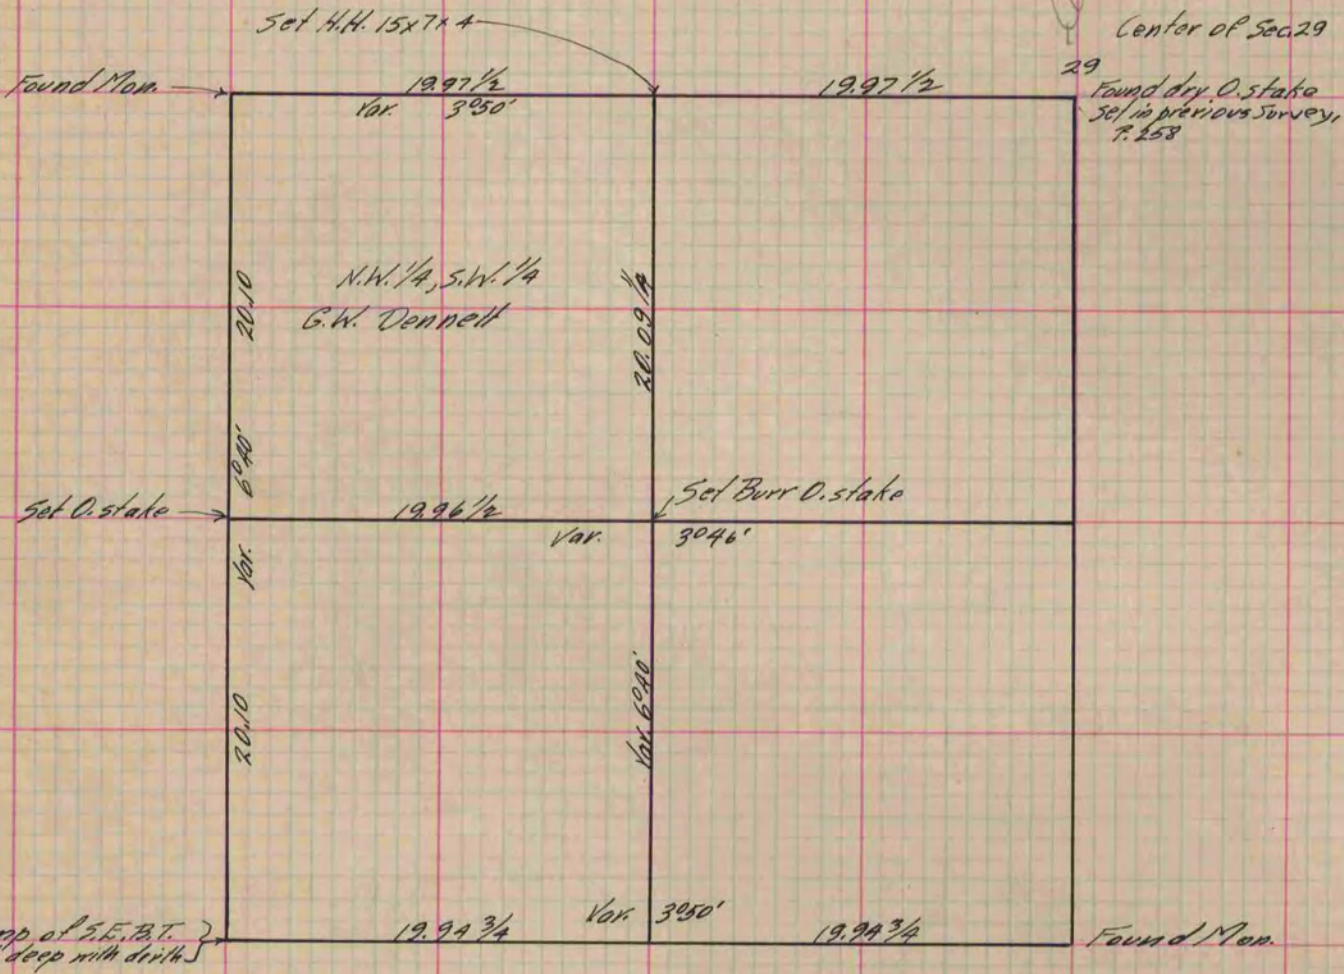 Set H.H. 15x7x4
Center of Sec. 29
29
Found Mon.
19.97 1/2
19.97 1/2
Found dry O. stake
set in previous Survey,
P. 258
Var. 3°50'
20.10
N.W. 1/4, S.W. 1/4
G.W. Dennett
20.09 1/4
6°40'
Set O. stake
19.96 1/2
Set Burr O. stake
Var.
Var. 3°46'
20.10
Var. 6°40'
Var. 3°50'
mp of S.E. B.T. }
deep with dirth
19.94 3/4
19.94 3/4
Found Mon.